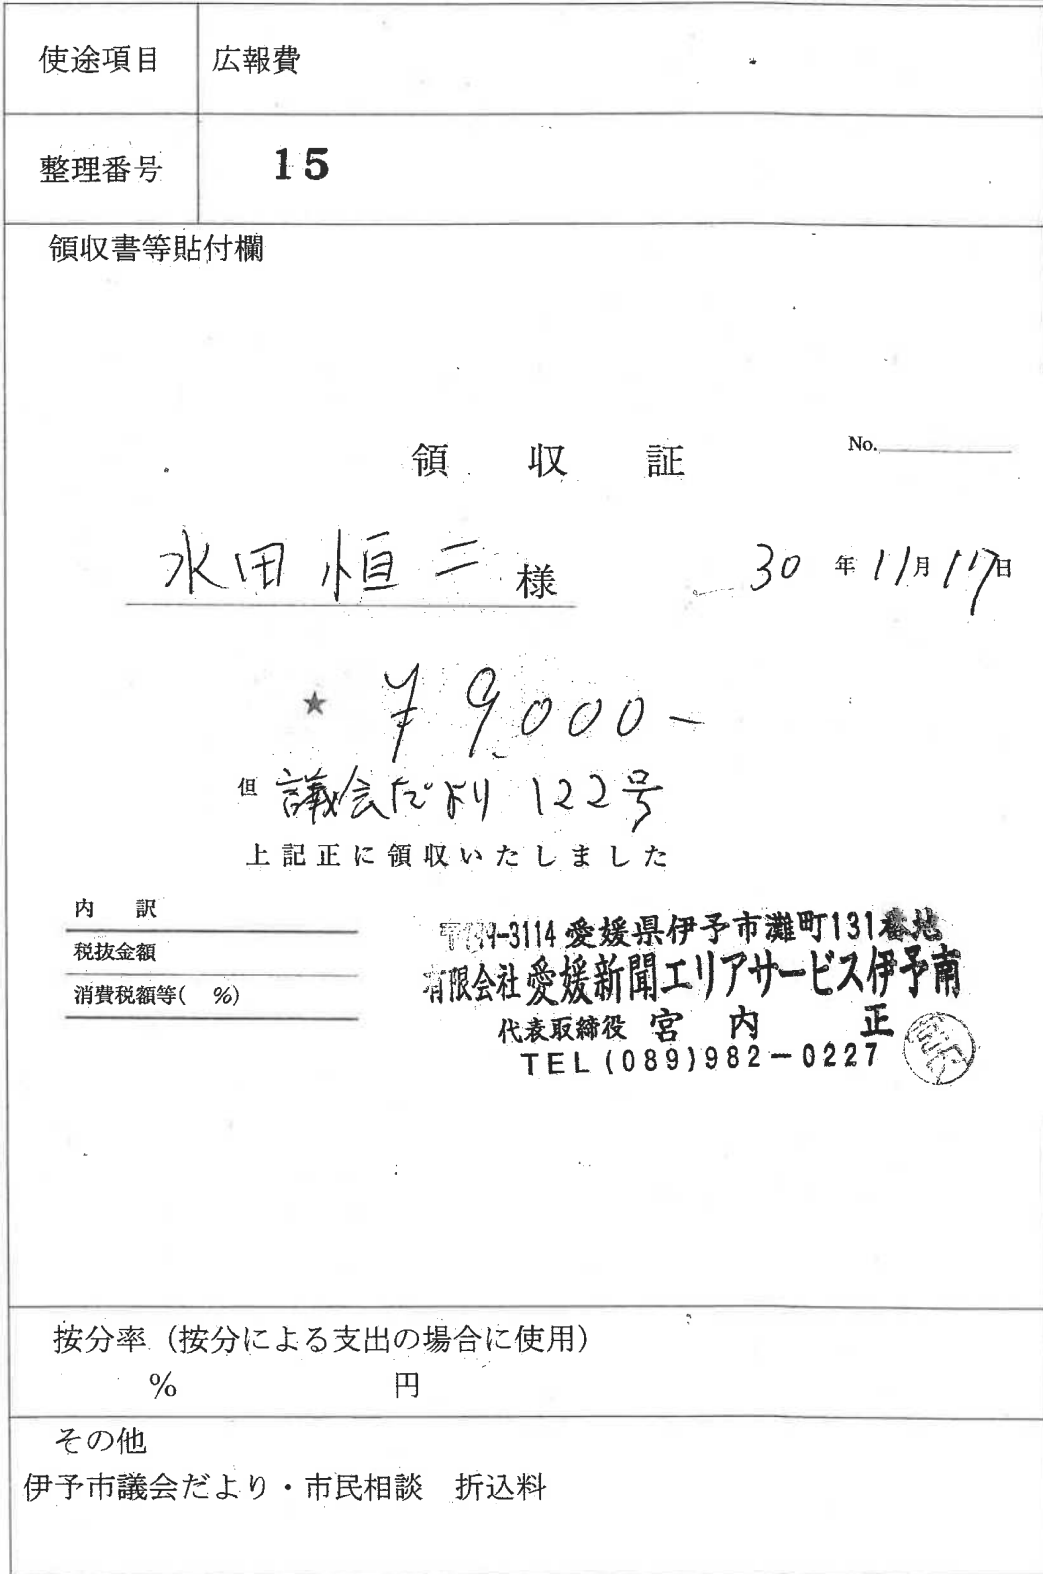 使途項目 広報費
整理番号 15
領収書等貼付欄
領収証 No.
水田恒二様 30年11月17日
★ ¥9,000-
但 議会だより 122号
上記正に領収いたしました
内訳
税抜金額
消費税額等( %)
-3114 愛媛県伊予市灘町131番地
有限会社愛媛新聞エリアサービス伊予南
代表取締役 宮内 正
TEL(089)982-0227
按分率(按分による支出の場合に使用)
% 円
その他
伊予市議会だより・市民相談 折込料